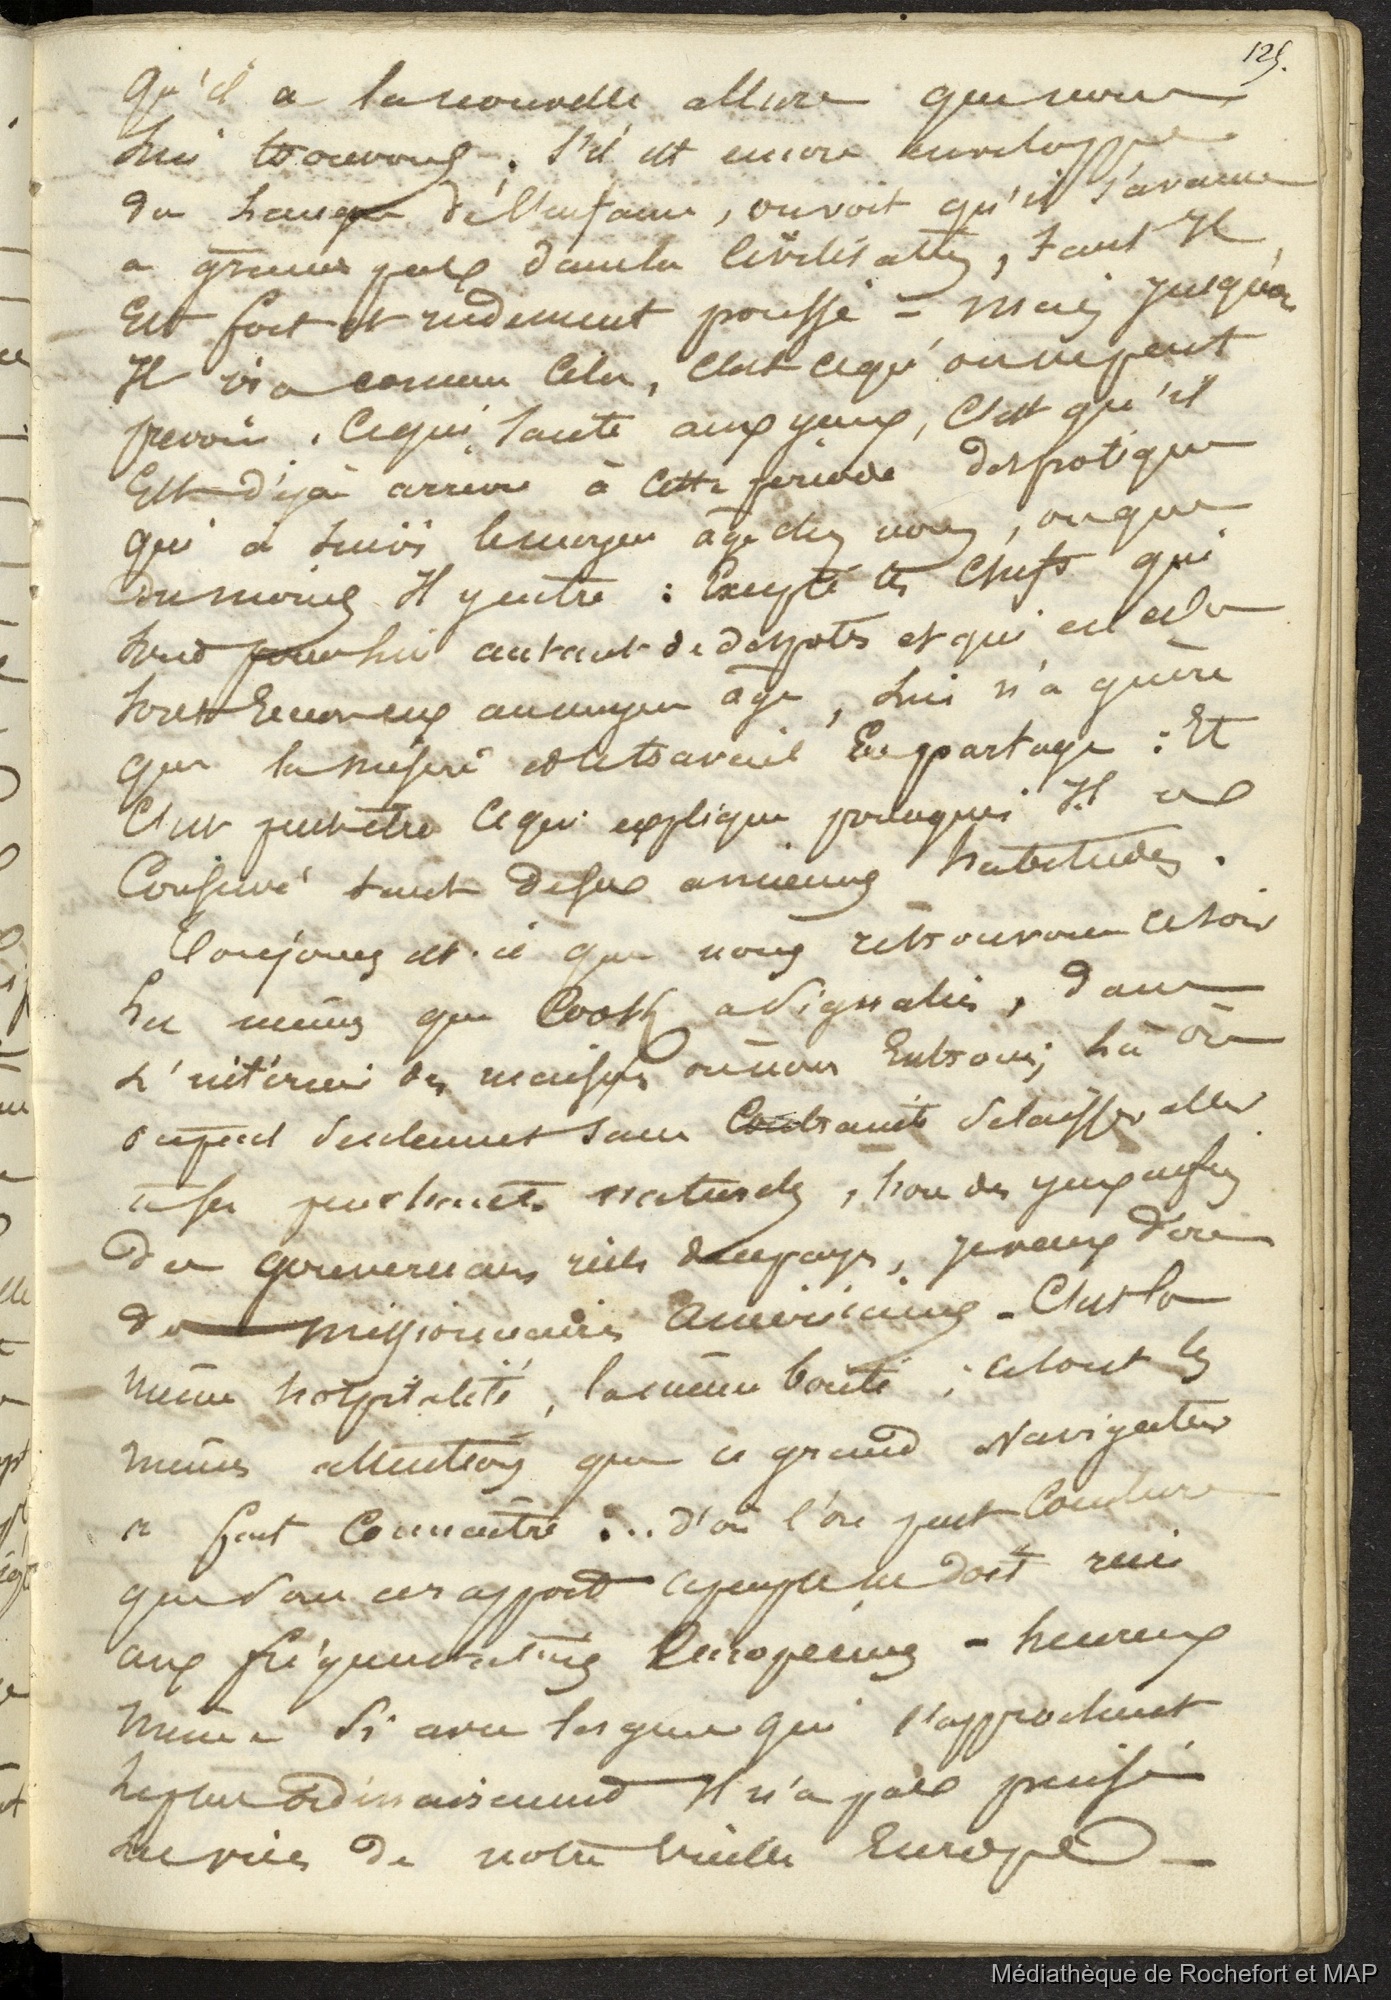 125.
Qu'il a la nouvelle allure que nous
lui trouvons. S'il est encore enveloppé
du lange de l'enfance, on voit qu'il s'avance
a grands pas dans la civilisation, tant Il
Est fort et rudement poussé - Mais jusqu'où
Il ira comme cela, c'est ce qu'on ne peut
prevoir. Ce qui saute aux yeux, C'est qu'il
Est déjà arrivé à cette période despotique
qui a suivi le moyen âge chez nous, ou que
du moins Il y entre : Excepté les Chefs qui
sont pour lui autant de despotes et qui en cela
sont Encore au moyen âge, lui n'a guère
que la misère et le travail En partage : Et
C'est peut-être ce qui explique pourquoi Il a
Conservé tant de ses anciennes habitudes.
Toujours est-il que nous retrouvons ce soir
les mêmes que Cook a signalées, dans
l'intérieur des maisons où nous Entrons; là où
on peut seulement sans Contrainte se laisser aller
à ses penchants naturels, hors des yeux enfin
des gouverneurs réels du pays, je veux dire
des missionnaires Américains - C'est la
même hospitalité, la même bonté ; ce sont les
mêmes attentions que ce grand Navigateur
a fait Connaître ... d'où l'on peut Conclure
que sous ce rapport ce peuple ne doit rien
aux fréquentations Européennes - heureux
même si avec les gens qui l'approchent
le plus ordinairement Il n'a pas puisé
les vices de notre vieille Europe -
Médiathèque de Rochefort et MAP